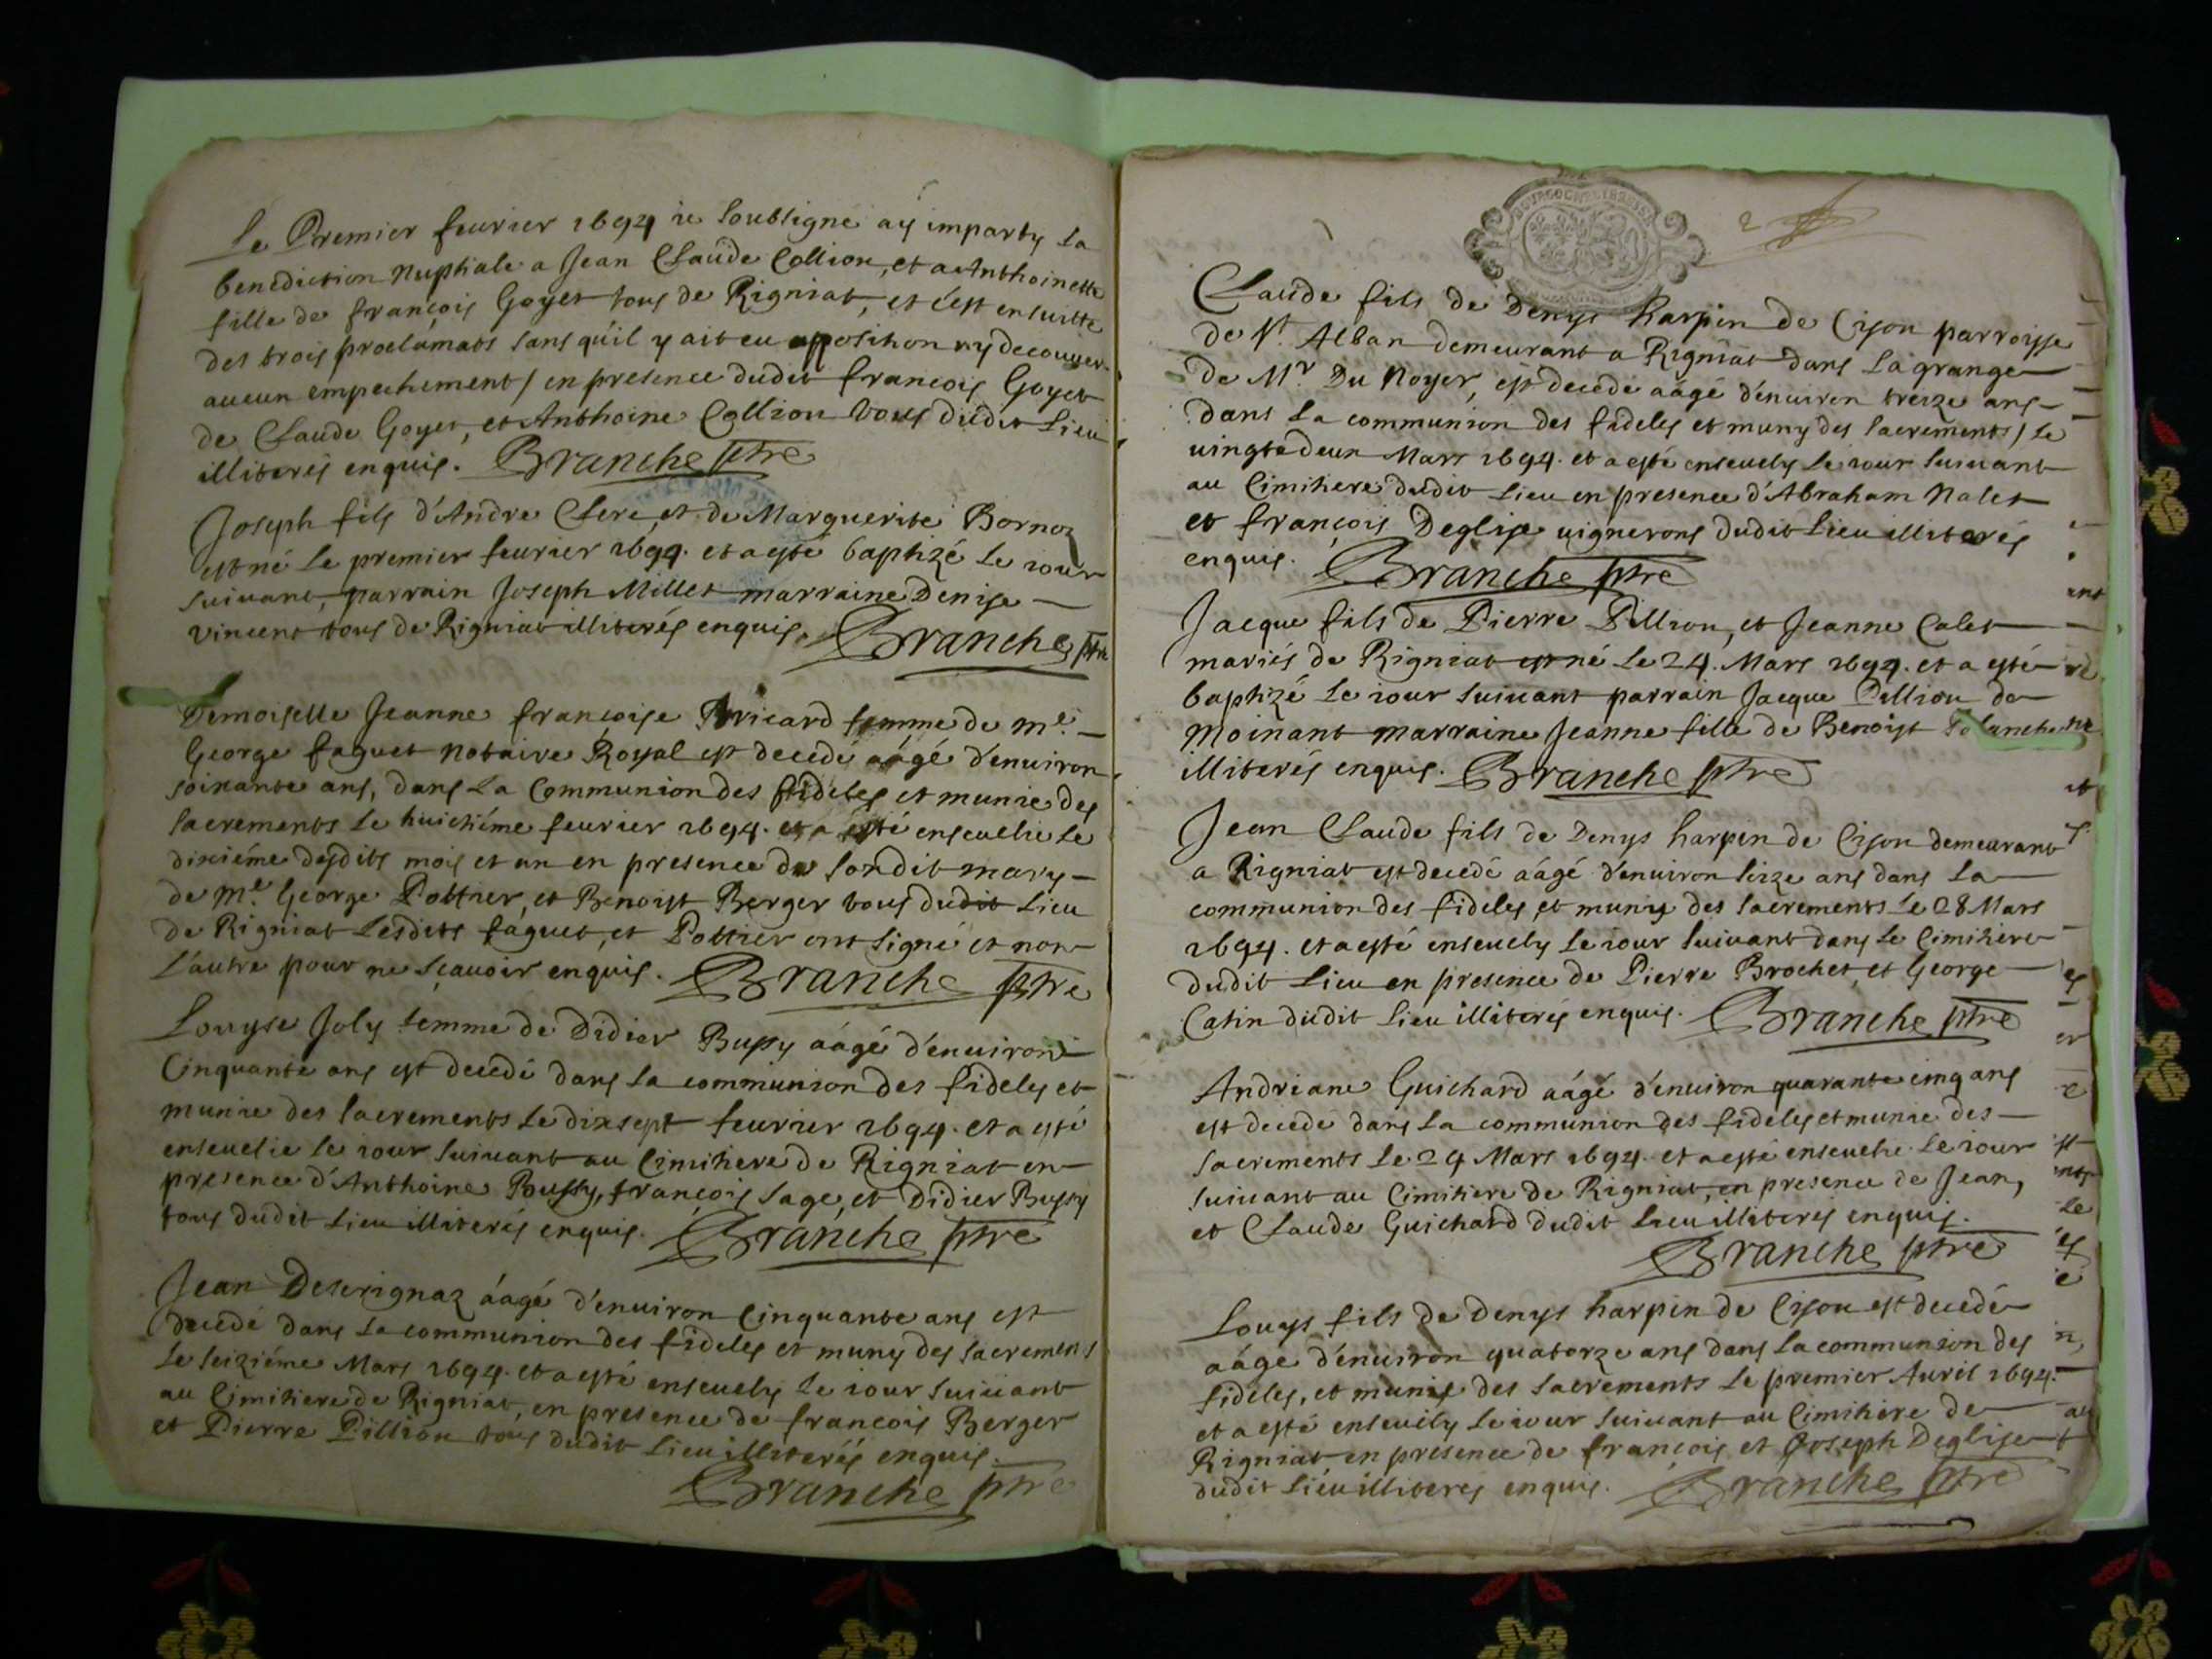 Le Premier feurier 1694 ie soubsigné aÿ imparty la
benediction Nuptiale a Jean Claude Collion, et a Anthoinette
fille de françois Goyet tous de Rigniat, et c'est ensuitte
des trois proclamats sans qu'il y ait eu opposition ny decouuer
aucun empechement / en presence dudit françois Goyet
de Claude Goyet, et Anthoine Collion tous dudit Lieu
illiterés enquis. Branche ptre
Joseph fils d'Andre Clerc, et de Marguerite Bornoz
est né le premier feurier 1694. et a esté baptizé le iour
suiuant, parrain Joseph Millet marraine Denise
Vincent tous de Rigniat illiterés enquis. Branche ptre
Demoiselle Jeanne françoise Bricard femme de Me.
George faguet Notaire Royal est decedé aágé d'enuiron
soixante ans, dans la Communion des fideles et munie des
sacrements le huictiéme feurier 1694. et a esté enseuelie le
dixiéme desdits mois et an en presence de sondit mary
de Me. George Pottier, et Benoist Berger tous dudit Lieu
de Rigniat Lesdits faguet, et Pottier ont signé et non
L'autre pour ne sçauoir enquis. Branche ptre
Louyse Joly femme de Didier Bussy aágé d'enuiron
Cinquante ans est decedé dans la communion des fideles et
munie des sacrements le dixsept feurier 1694. et a esté
enseuelie le iour suiuant au Cimitiere de Rigniat en
presence d'Anthoine Bussy, françois Sage, et Didier Bussy
tous dudit Lieu illiterés enquis. Branche ptre
Jean Deserignaz aágé d'enuiron Cinquante ans est
decedé dans la communion des fideles et muny des sacrements
le seiziéme Mars 1694. et a esté enseuely le iour suiuant
au Cimitiere de Rigniat, en presence de françois Berger
et Pierre Pillion tous dudit Lieu illiterés enquis.
Branche ptre
2
Claude fils de Denys harpin de Cison parroisse
de St. Alban demeurant a Rigniat dans la grange
de Mr. Du Noyer, est decedé aágé d'enuiron treize ans
dans la communion des fideles et muny des sacrements / le
uingtedeux Mars 1694. et a esté enseuely le iour suiuant
au Cimitiere dudit Lieu en presence d'Abraham Nalet
et françois Deglise uignerons dudit Lieu illiterés
enquis. Branche ptre
Jacque fils de Pierre Pillion, et Jeanne Calet
mariés de Rigniat est né le 24. Mars 1694. et a esté
baptizé le iour suiuant parrain Jacque Pillion de
Moinant marraine Jeanne fille de Benoist
illiterés enquis. Branche ptre
Jean Claude fils de Denys harpin de Cison demeurant
a Rigniat est decedé aágé d'enuiron seize ans dans la
communion des fideles et muny des sacrements le 28 Mars
1694. et a esté enseuely le iour suiuant dans le Cimitiere
dudit Lieu en presence de Pierre Brochet, et George
Catin dudit Lieu illiterés enquis. Branche ptre
Andriane Guichard aágé d'enuiron quarante cinq ans
est decedé dans la communion des fideles et munie des
sacrements le 29 Mars 1694. et a esté enseuelie le iour
suiuant au Cimitiere de Rigniat, en presence de Jean,
et Claude Guichard dudit Lieu illiterés enquis.
Branche ptre
Louys fils de Denys harpin de Cison est decedé
aágé d'enuiron quatorze ans dans la communion des
fideles, et muny des sacrements le premier Auril 1694.
et a esté enseuely le iour suiuant au Cimitiere de
Rigniat en presence de françois et Joseph Deglise
dudit Lieu illiterés enquis. Branche ptre